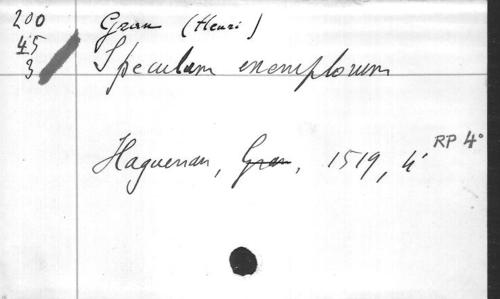 200 Gran (Henri)
45 Speculum exemplorum
3
RP 4°
Haguenau, Gran, 1519, 4°